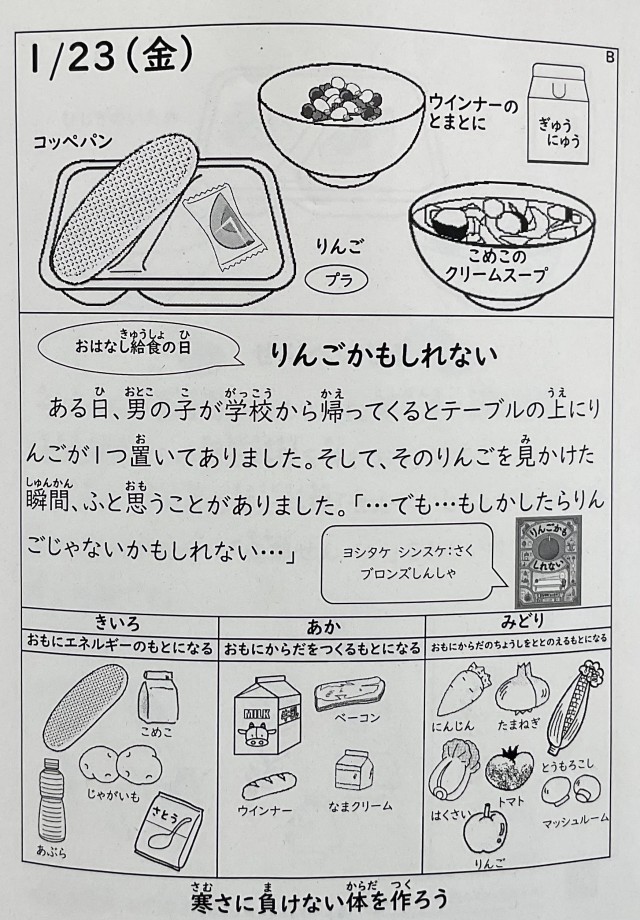 1/23(金)
B
コッペパン
ウインナーの
とまとに
ぎゅう
にゅう
りんご
プラ
こめこの
クリームスープ
おはなし給食の日
きゅうしょ ひ
りんごかもしれない
ひ おとこ こ がっこう かえ うえ
ある日、男の子が学校から帰ってくるとテーブルの上にり
お み
んごが1つ置いてありました。そして、そのりんごを見かけた
しゅんかん おも
瞬間、ふと思うことがありました。「…でも…もしかしたらりん
ごじゃないかもしれない…」
ヨシタケ シンスケ:さく
ブロンズしんしゃ
りんごかも
しれない
きいろ
おもにエネルギーのもとになる
こめこ
じゃがいも
あぶら
さとう
あか
おもにからだをつくるもとになる
MILK
ベーコン
ウインナー
なまクリーム
みどり
おもにからだのちょうしをととのえるもとになる
にんじん
たまねぎ
とうもろこし
はくさい
トマト
マッシュルーム
りんご
さむ ま からだ つく
寒さに負けない体を作ろう